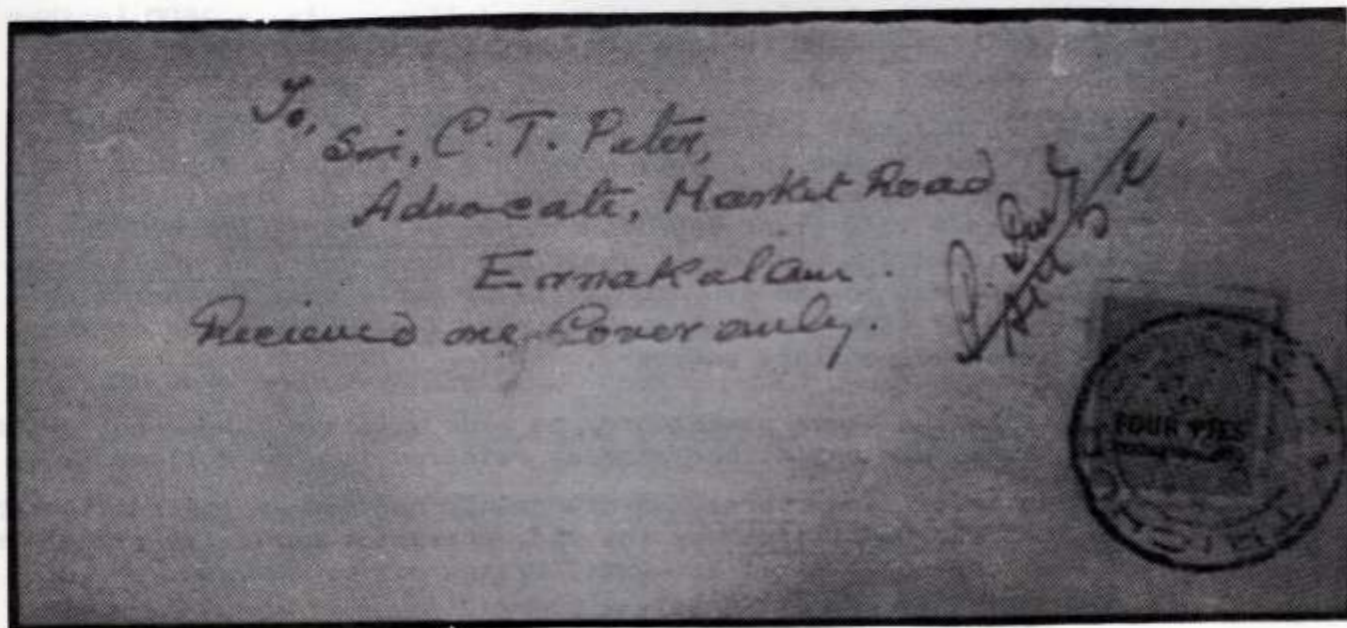 To,
Sri, C. T. Peter,
Advocate, Market Road
Ernakalam.
Recieved one Cover only.
FOUR PIES
TRICHUR